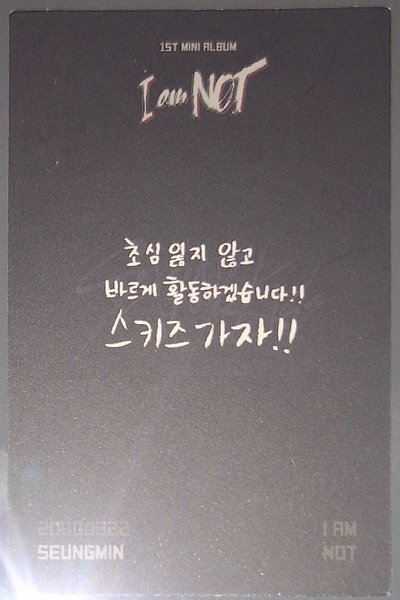 1ST MINI ALBUM
I am NOT
초심 잃지 않고
바르게 활동하겠습니다!!
스키즈 가자!!
20000922
SEUNGMIN
I AM
NOT